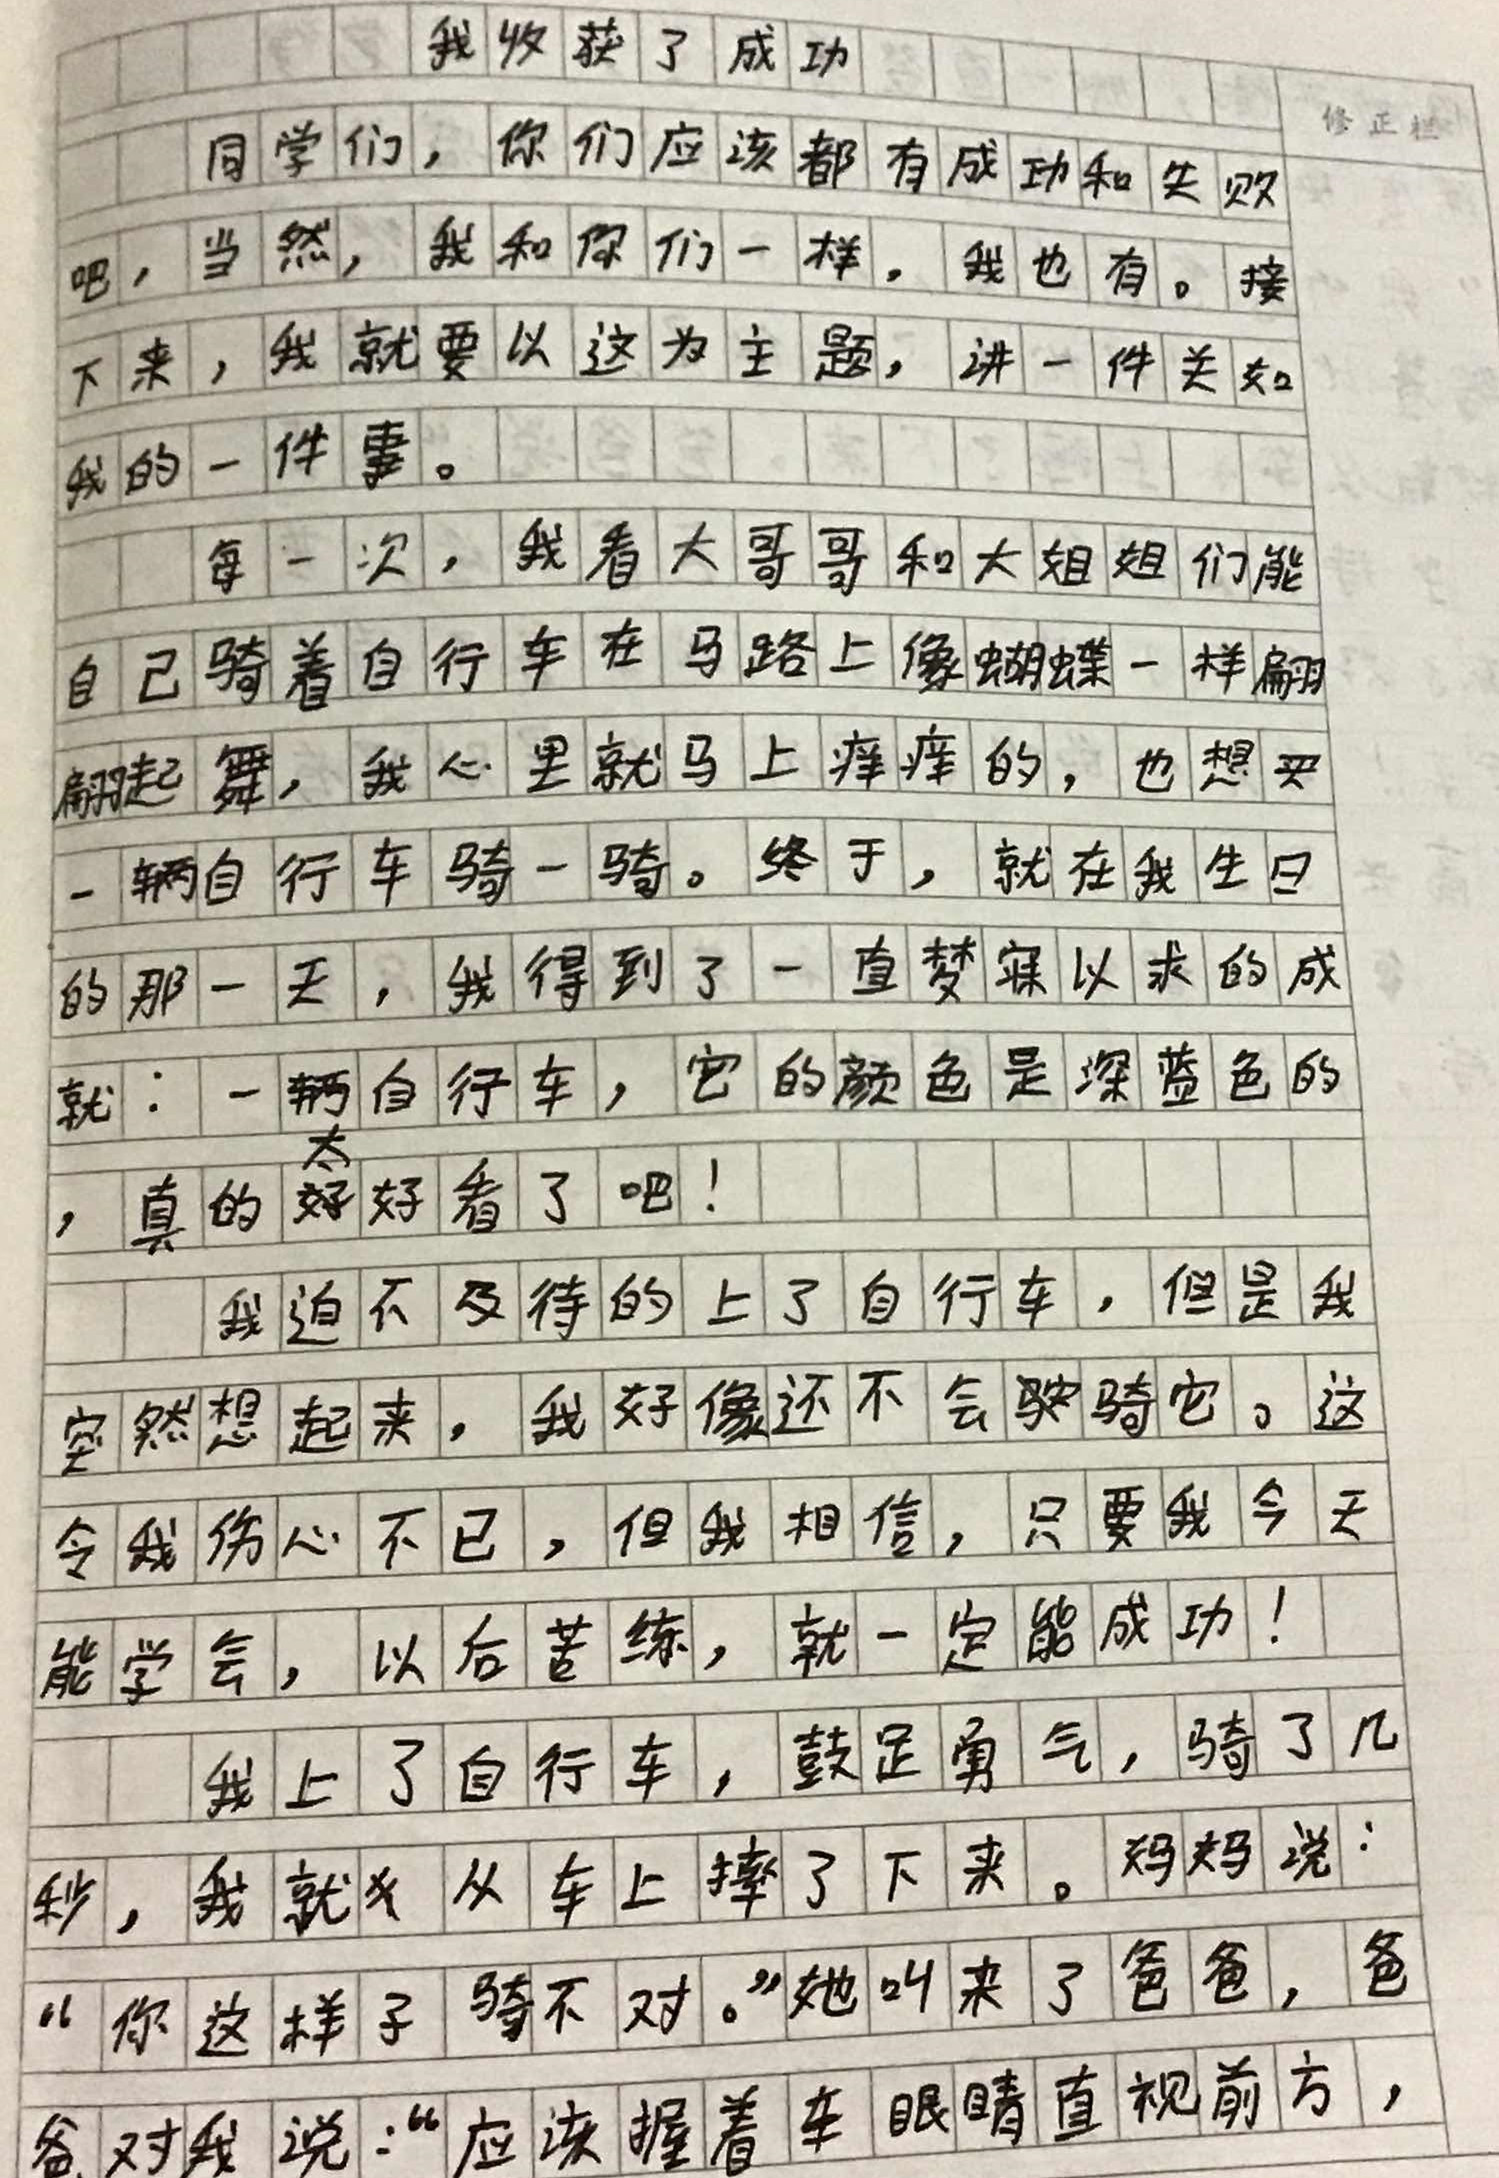 我收获了成功
修正栏
同学们，你们应该都有成功和失败
吧，当然，我和你们一样，我也有。接
下来，我就要以这为主题，讲一件关如
我的一件事。
每一次，我看大哥哥和大姐姐们能
自己骑着自行车在马路上像蝴蝶一样翩
翩起舞，我心里就马上痒痒的，也想买
一辆自行车骑一骑。终于，就在我生日
的那一天，我得到了一直梦寐以求的成
就：一辆自行车，它的颜色是深蓝色的
太
，真的好好看了吧！
我迫不及待的上了自行车，但是我
突然想起来，我好像还不会驶骑它。这
令我伤心不已，但我相信，只要我今天
能学会，以后苦练，就一定能成功！
我上了自行车，鼓足勇气，骑了几
秒，我就从车上摔了下来。妈妈说：
“你这样子骑不对。”她叫来了爸爸，爸
爸对我说：“应该握着车眼睛直视前方，